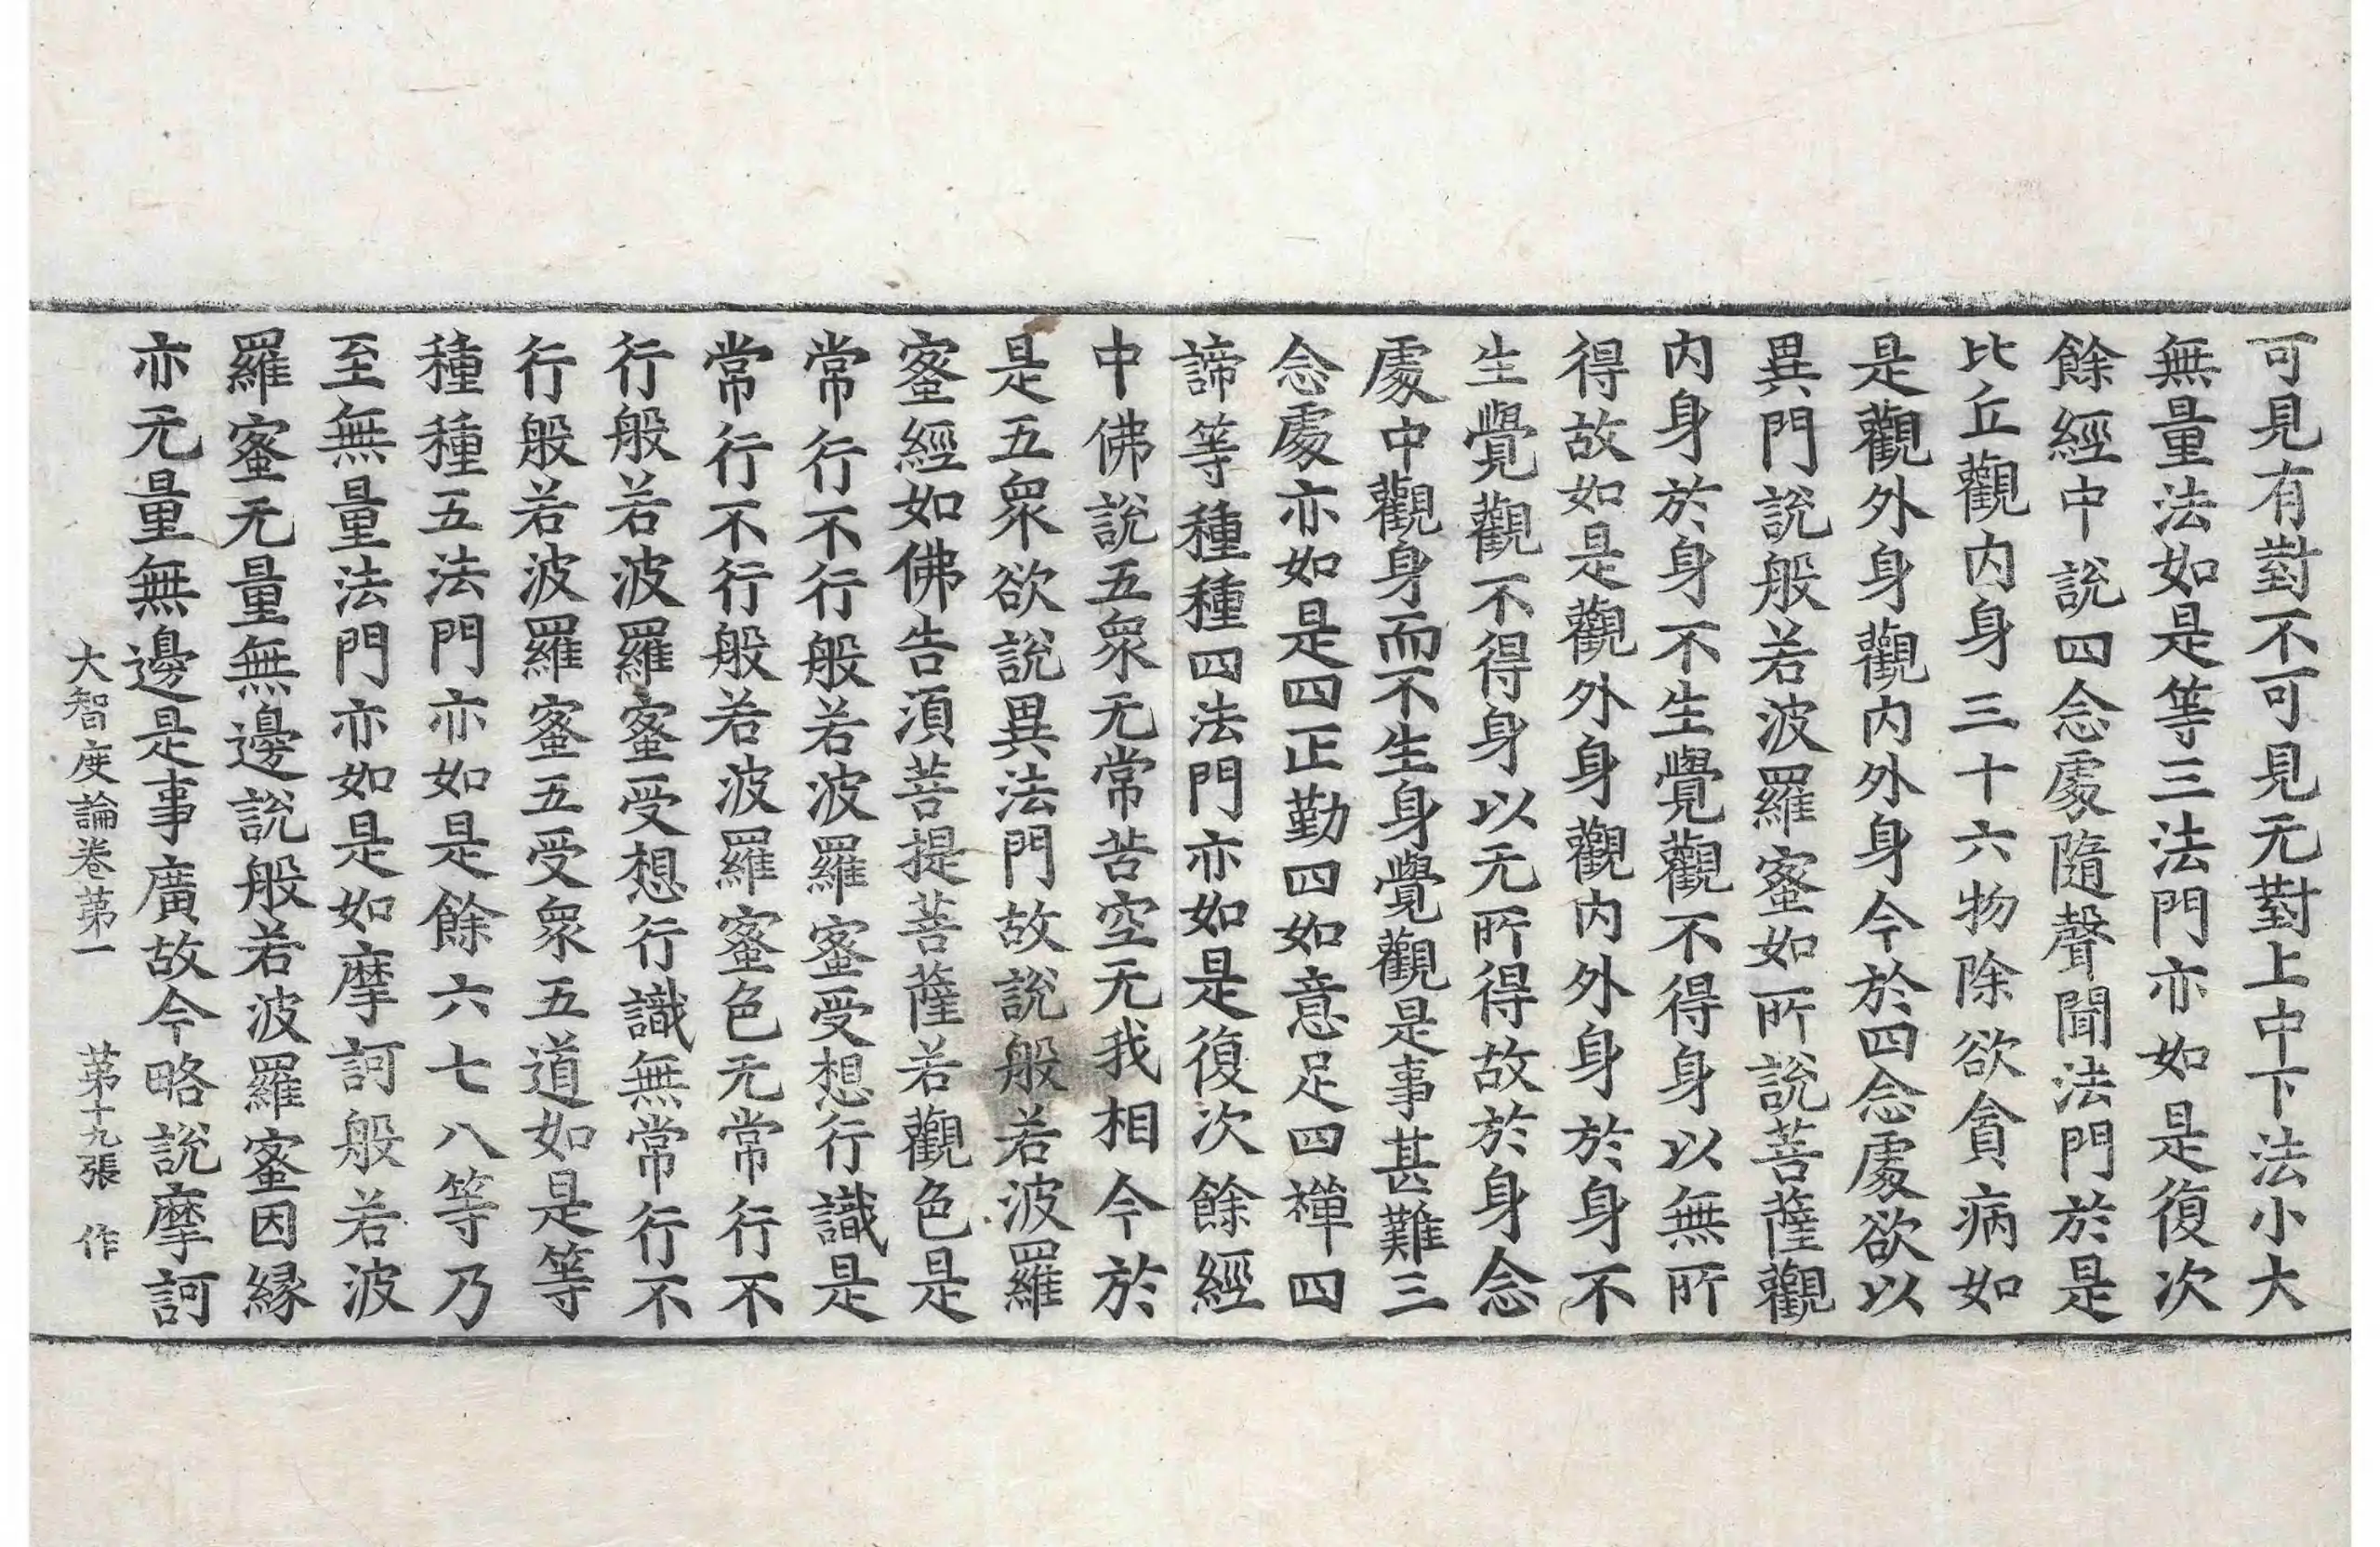 可見有對不可見无對上中下法小大
無量法如是等三法門亦如是復次
餘經中說四念處隨聲聞法門於是
比丘觀內身三十六物除欲貪病如
是觀外身觀內外身今於四念處欲以
異門說般若波羅蜜如所說菩薩觀
內身於身不生覺觀不得身以無所
得故如是觀外身觀內外身於身不
生覺觀不得身以无所得故於身念
處中觀身而不生身覺觀是事甚難三
念處亦如是四正勤四如意足四禪四
諦等種種四法門亦如是復次餘經
中佛說五衆无常苦空无我相今於
是五衆欲說異法門故說般若波羅
蜜經如佛告湏菩提菩薩若觀色是
常行不行般若波羅蜜受想行識是
常行不行般若波羅蜜色无常行不
行般若波羅蜜受想行識無常行不
行般若波羅蜜五受衆五道如是等
種種五法門亦如是餘六七八等乃
至無量法門亦如是如摩訶般若波
羅蜜无量無邊說般若波羅蜜因縁
亦无量無邊是事廣故今略說摩訶
大智度論卷苐一 苐十九張 作